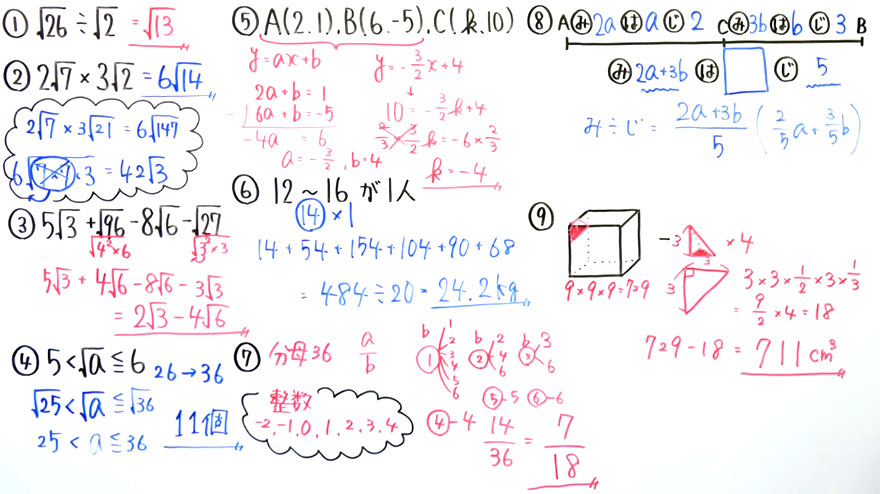 ① √26 ÷ √2 = √13
② 2√7 × 3√2 = 6√14
2√7 × 3√21 = 6√147
= 42√3
③ 5√3 + √96 - 8√6 - √27
√4²×6 √3²×3
5√3 + 4√6 - 8√6 - 3√3
= 2√3 - 4√6
④ 5 < √a ≦ 6 26 → 36
√25 < √a ≦ √36
25 < a ≦ 36 11個
⑤ A(2.1). B(6.-5). C(k.10)
y = ax + b
2a + b = 1
- 6a + b = -5
-4a = 6
a = -3/2, b = 4
y = -3/2x + 4
10 = -3/2k + 4
2/3 × 3/2k = -6 × 2/3
k = -4
⑥ 12 ~ 16 が 1人
14 × 1
14 + 54 + 154 + 104 + 90 + 68
= 484 ÷ 20 = 24.2kg
⑦ 分母36 a/b
整数
-2, -1, 0, 1, 2, 3, 4
b 1 2 3 4 5 6
①
b 2 4 6
②
b 3 6
③
⑤-5 ⑥-6
④-4 14/36 = 7/18
⑧ A み 2a は a じ 2 C み 3b は b じ 3 B
み 2a+3b は じ 5
み÷じ = 2a+3b/5 (2/5a + 3/5b)
⑨
9×9×9=729
- 3 3 × 4
3 3×3×1/2×3×1/3
= 9/2 × 4 = 18
729 - 18 = 711cm³